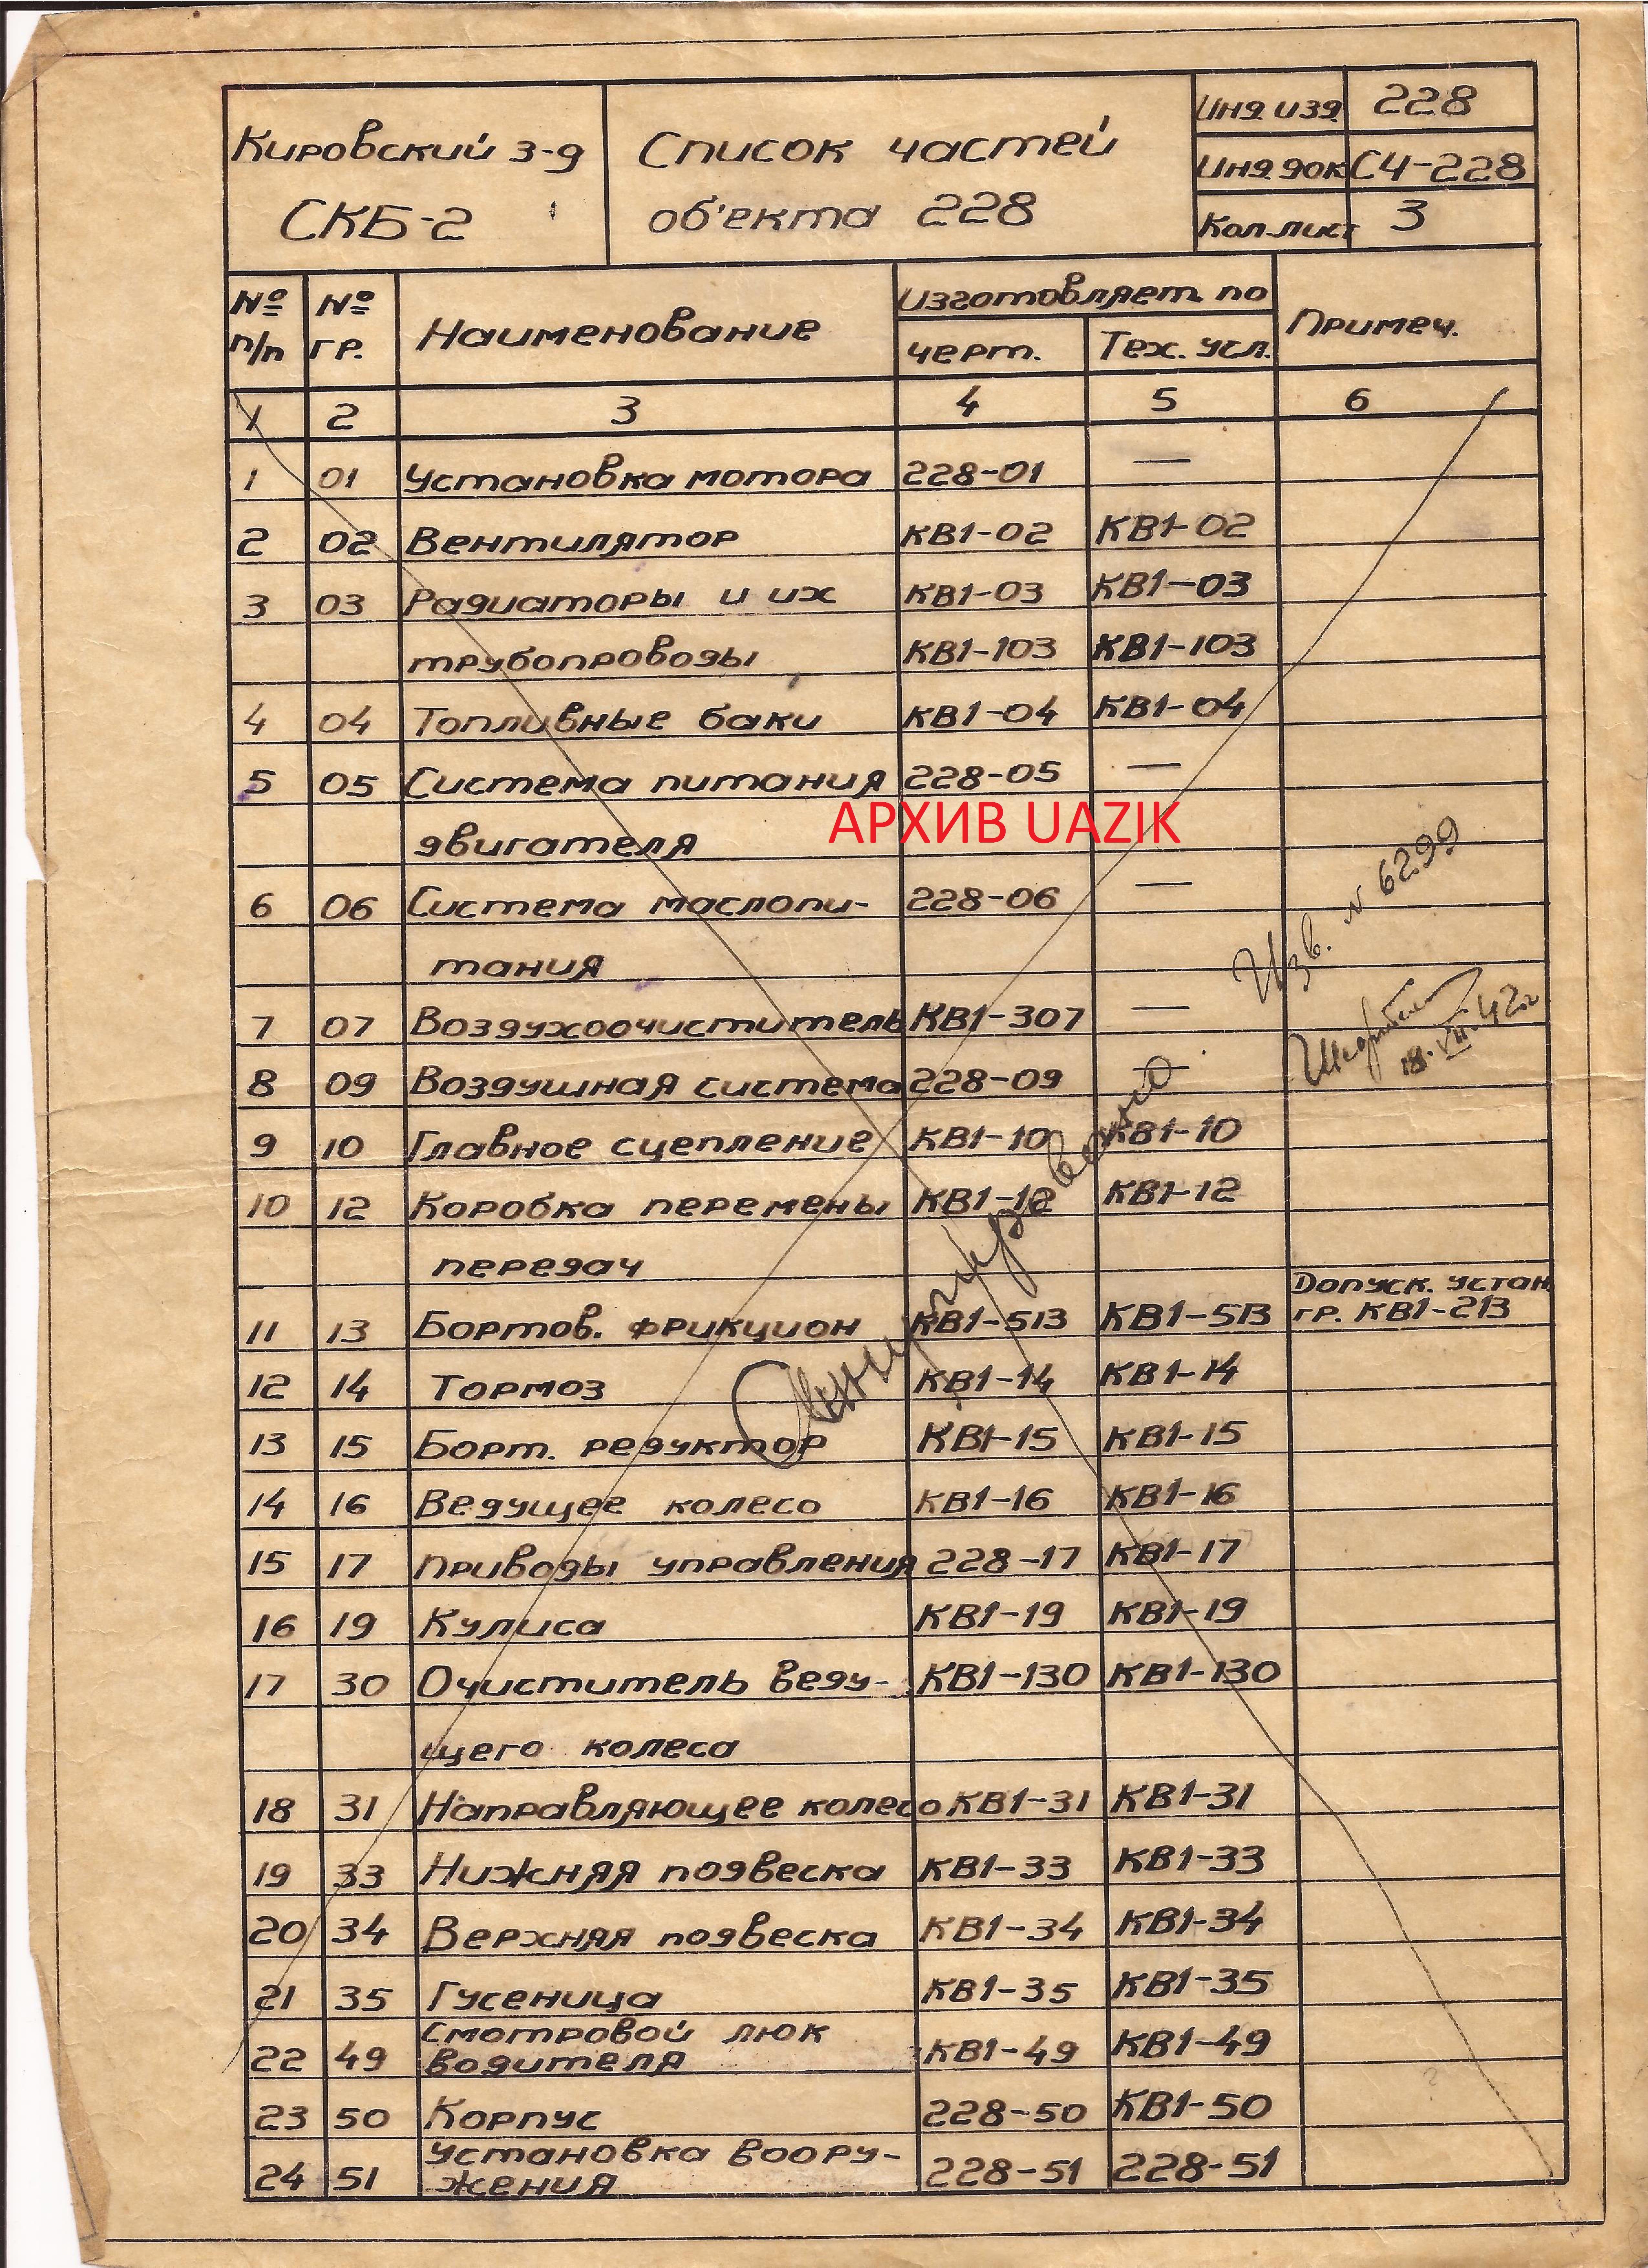 Кировский з-д
СКБ-2
Список частей
об'екта 228
Инд. изд. 228
Инд. док СЧ-228
Кол. лист 3
№ п/п
№ гр.
Наименование
Изготовляет. по
черт.
Тех. усл.
Примеч.
1 2 3 4 5 6
1 01 Установка мотора 228-01 —
2 02 Вентилятор КВ1-02 КВ1-02
3 03 Радиаторы и их КВ1-03 КВ1-03
трубопроводы КВ1-103 КВ1-103
4 04 Топливные баки КВ1-04 КВ1-04
5 05 Система питания 228-05 —
АРХИВ UAZIK
двигателя
6 06 Система маслопи- 228-06 —
тания
Изв. N 6299
7 07 Воздухоочиститель КВ1-307 —
18.VII.42г
8 09 Воздушная система 228-09 —
9 10 Главное сцепление КВ1-10 КВ1-10
10 12 Коробка перемены КВ1-12 КВ1-12
передач
Аннулировано
11 13 Бортов. фрикцион КВ1-513 КВ1-513 Допуск. устан.
гр. КВ1-213
12 14 Тормоз КВ1-14 КВ1-14
13 15 Борт. редуктор КВ1-15 КВ1-15
14 16 Ведущее колесо КВ1-16 КВ1-16
15 17 Приводы управления 228-17 КВ1-17
16 19 Кулиса КВ1-19 КВ1-19
17 30 Очиститель веду- КВ1-130 КВ1-130
щего колеса
18 31 Направляющее колесо КВ1-31 КВ1-31
19 33 Нижняя подвеска КВ1-33 КВ1-33
20 34 Верхняя подвеска КВ1-34 КВ1-34
21 35 Гусеница КВ1-35 КВ1-35
22 49 Смотровой люк
водителя КВ1-49 КВ1-49
23 50 Корпус 228-50 КВ1-50
24 51 Установка воору-
жения 228-51 228-51